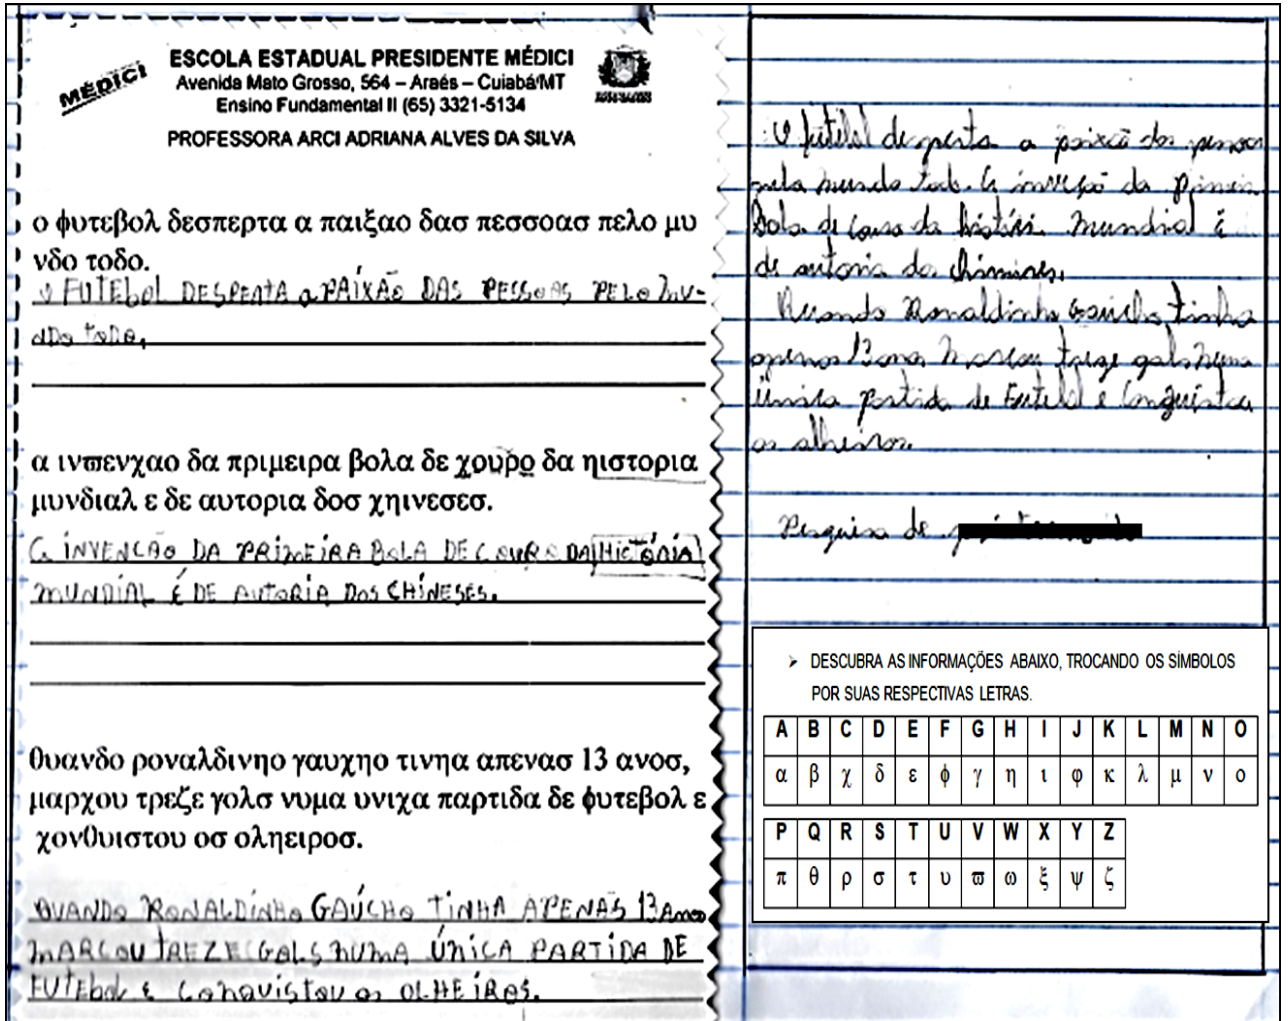 MÉDICI
ESCOLA ESTADUAL PRESIDENTE MÉDICI
Avenida Mato Grosso, 564 – Araés – Cuiabá/MT
Ensino Fundamental II (65) 3321-5134
PROFESSORA ARCI ADRIANA ALVES DA SILVA
ο φυτεβολ δεσπερτα α παιξαο δασ πεσσοασ πελο μυ
νδο τοδο.
O FUTEbol DESPERTA a PAÍXÃO DAS PESSOAS PELO MU-
NDO TODO.
α ινϖενχαο δα πριμειρα βολα δε χουρο δα ηιστορια
μυνδιαλ ε δε αυτορια δοσ χηινεσεσ.
A INVENÇÃO DA PRIMEIRA BOLA DE COURO DA HICTÓRIA
MUNDIAL É DE AUTORIA DOS CHINESES.
θυανδο ροναλδινηο γαυχηο τινηα απενασ 13 ανοσ,
μαρχου τρεζε γολσ νυμα υνιχα παρτιδα δε φυτεβολ ε
χονθυιστου οσ οληειροσ.
QUANDO RONALDINHO GAÚCHO TINHA APENAS 13 Anos
MARCOU TREZE GOLS NUMA ÚNICA PARTIDA DE
FUTEbol E Conquistou os OLHEIROS.
O futebol desperta a paixão das pessoas
pelo mundo todo. A inveção da
Bola de couro da Mundial é
de autoria dos chineses.
Quando Ronaldinho Gaúcho tinha
apenas 13 anos marcou treze gols numa
única partida de Futebol e Conquistou
os olheiros.
Pesquisa de
➢ DESCUBRA AS INFORMAÇÕES ABAIXO, TROCANDO OS SÍMBOLOS
POR SUAS RESPECTIVAS LETRAS.
A B C D E F G H I J K L M N O
α β χ δ ε ϕ γ η ι φ κ λ μ ν ο
P Q R S T U V W X Y Z
π θ ρ σ τ υ ϖ ω ξ ψ ζ